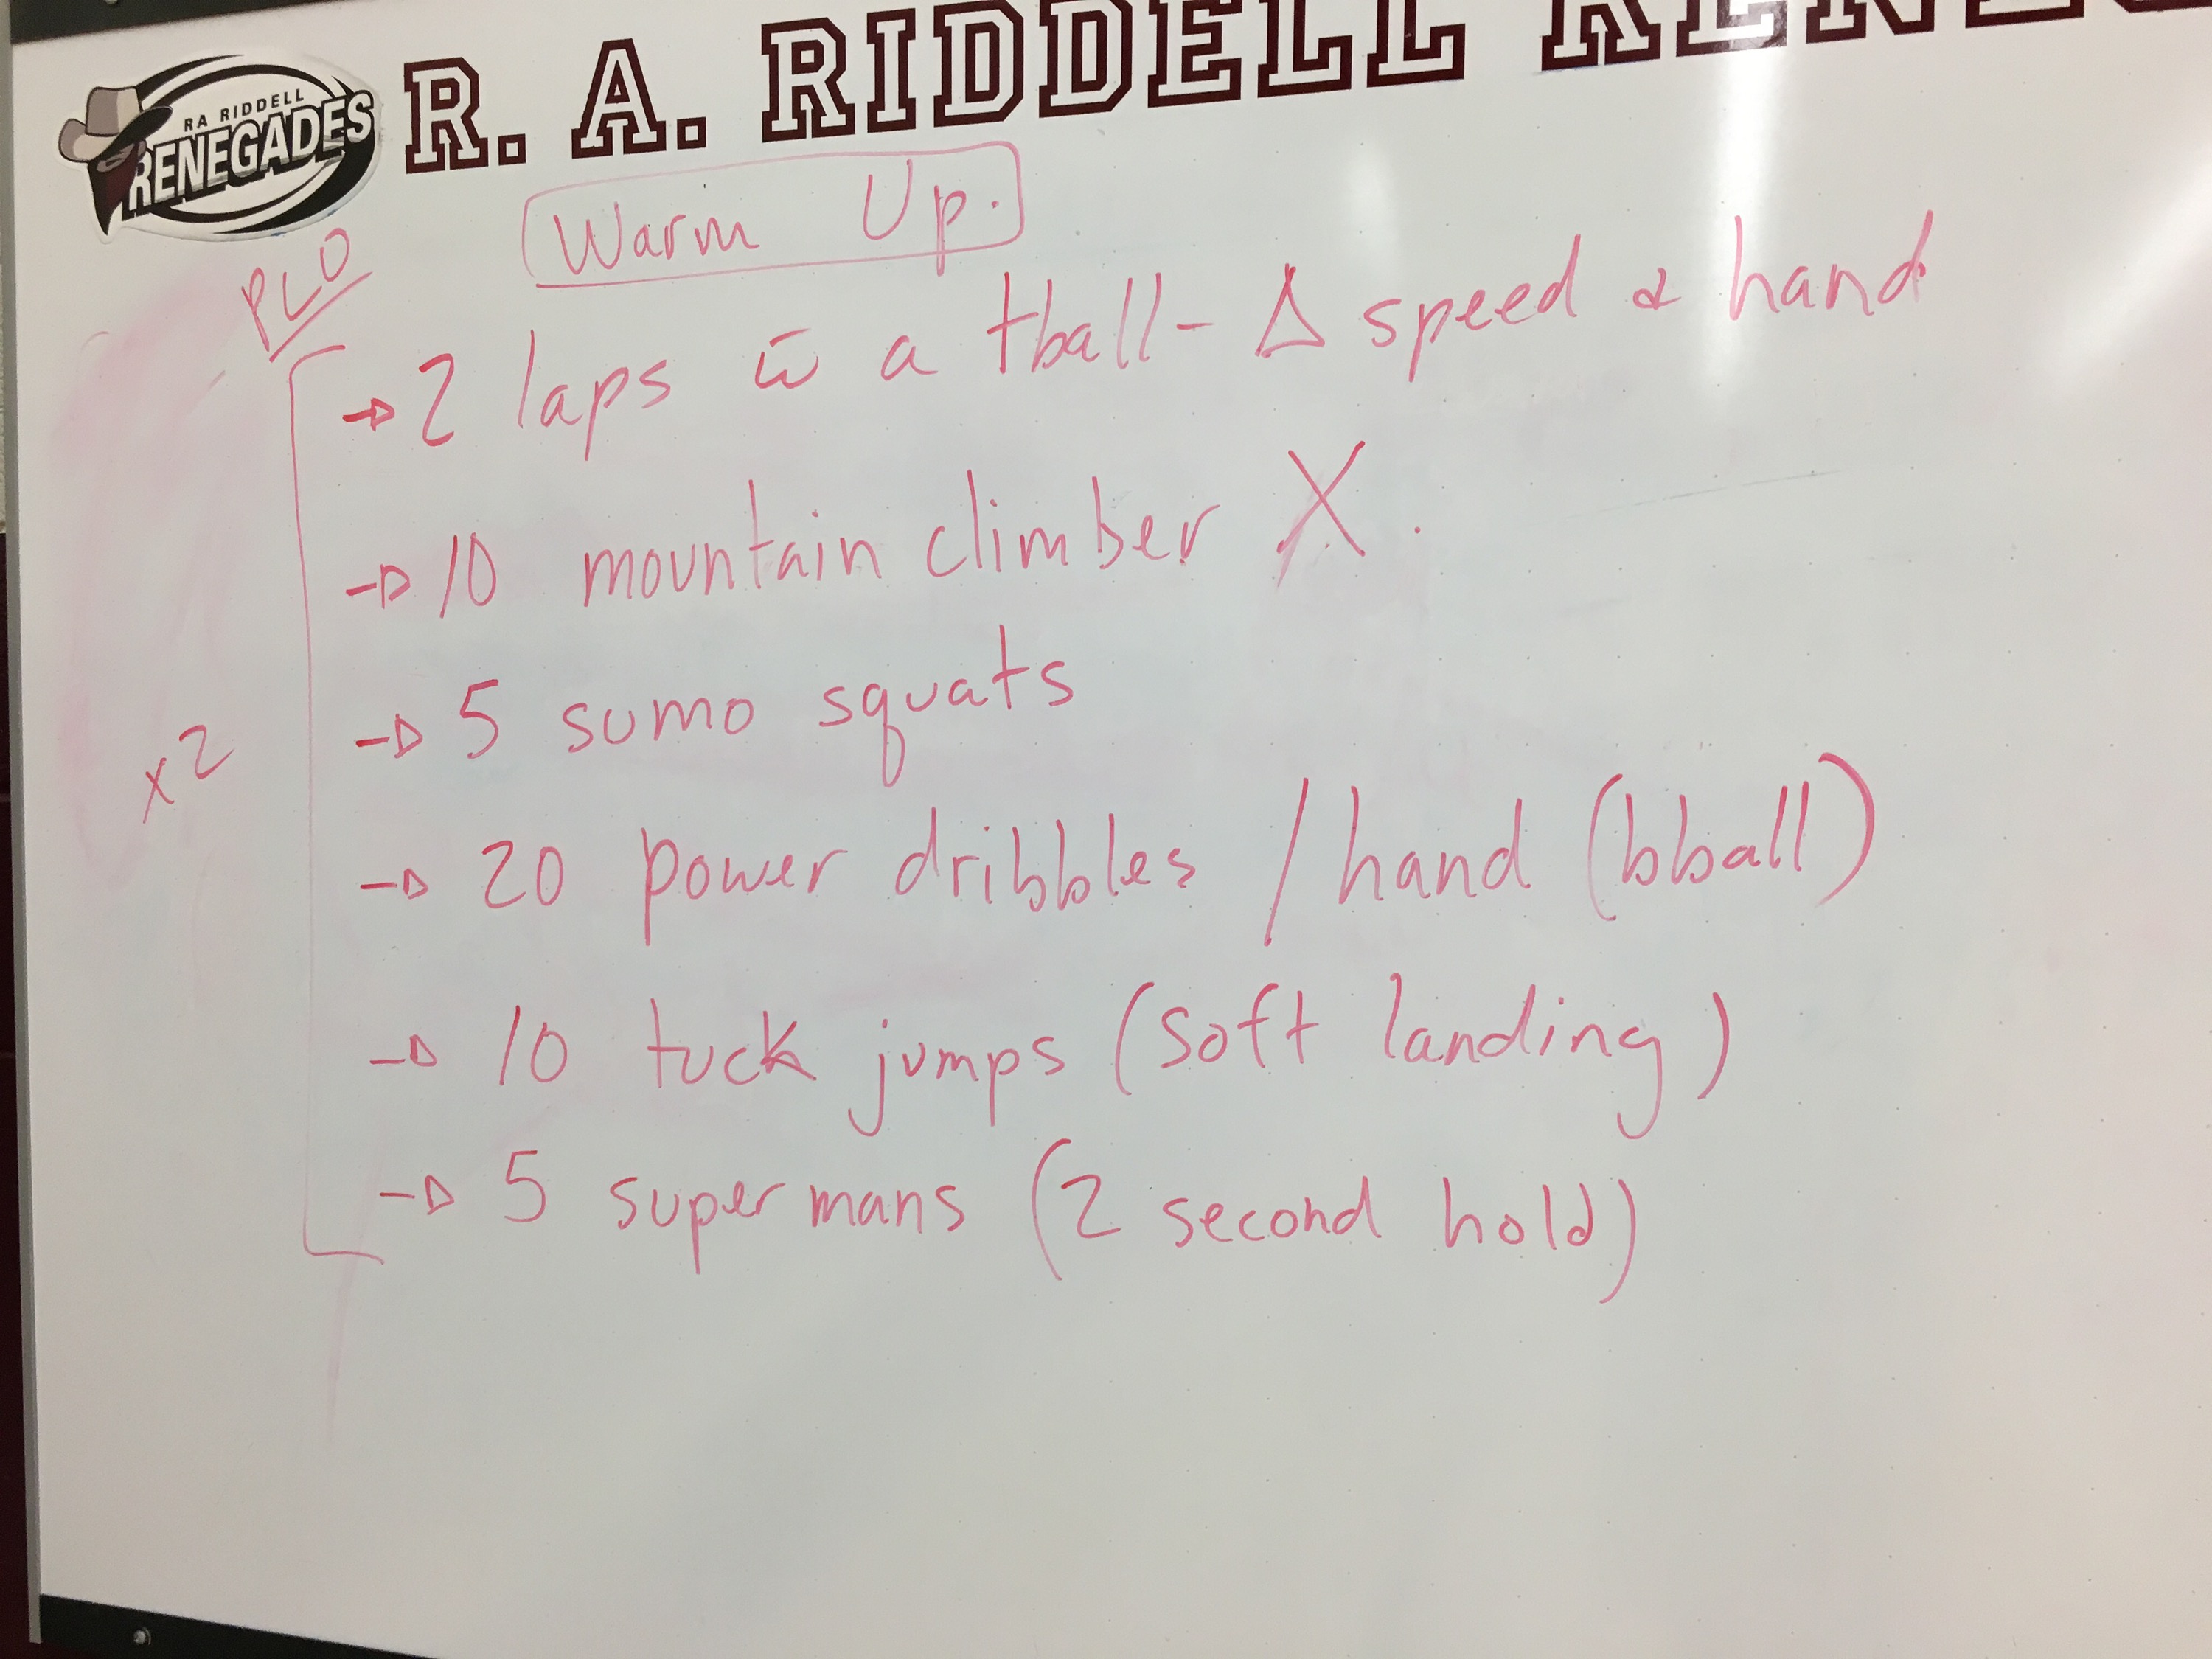 RA RIDDELL
RENEGADES
R. A. RIDDELL
Warm Up.
PLO
→ 2 laps w̄ a tball - Δ speed & hand
→ 10 mountain climber X.
→ 5 sumo squats
x2
→ 20 power dribbles / hand (bball)
→ 10 tuck jumps (soft landing)
→ 5 supermans (2 second hold)